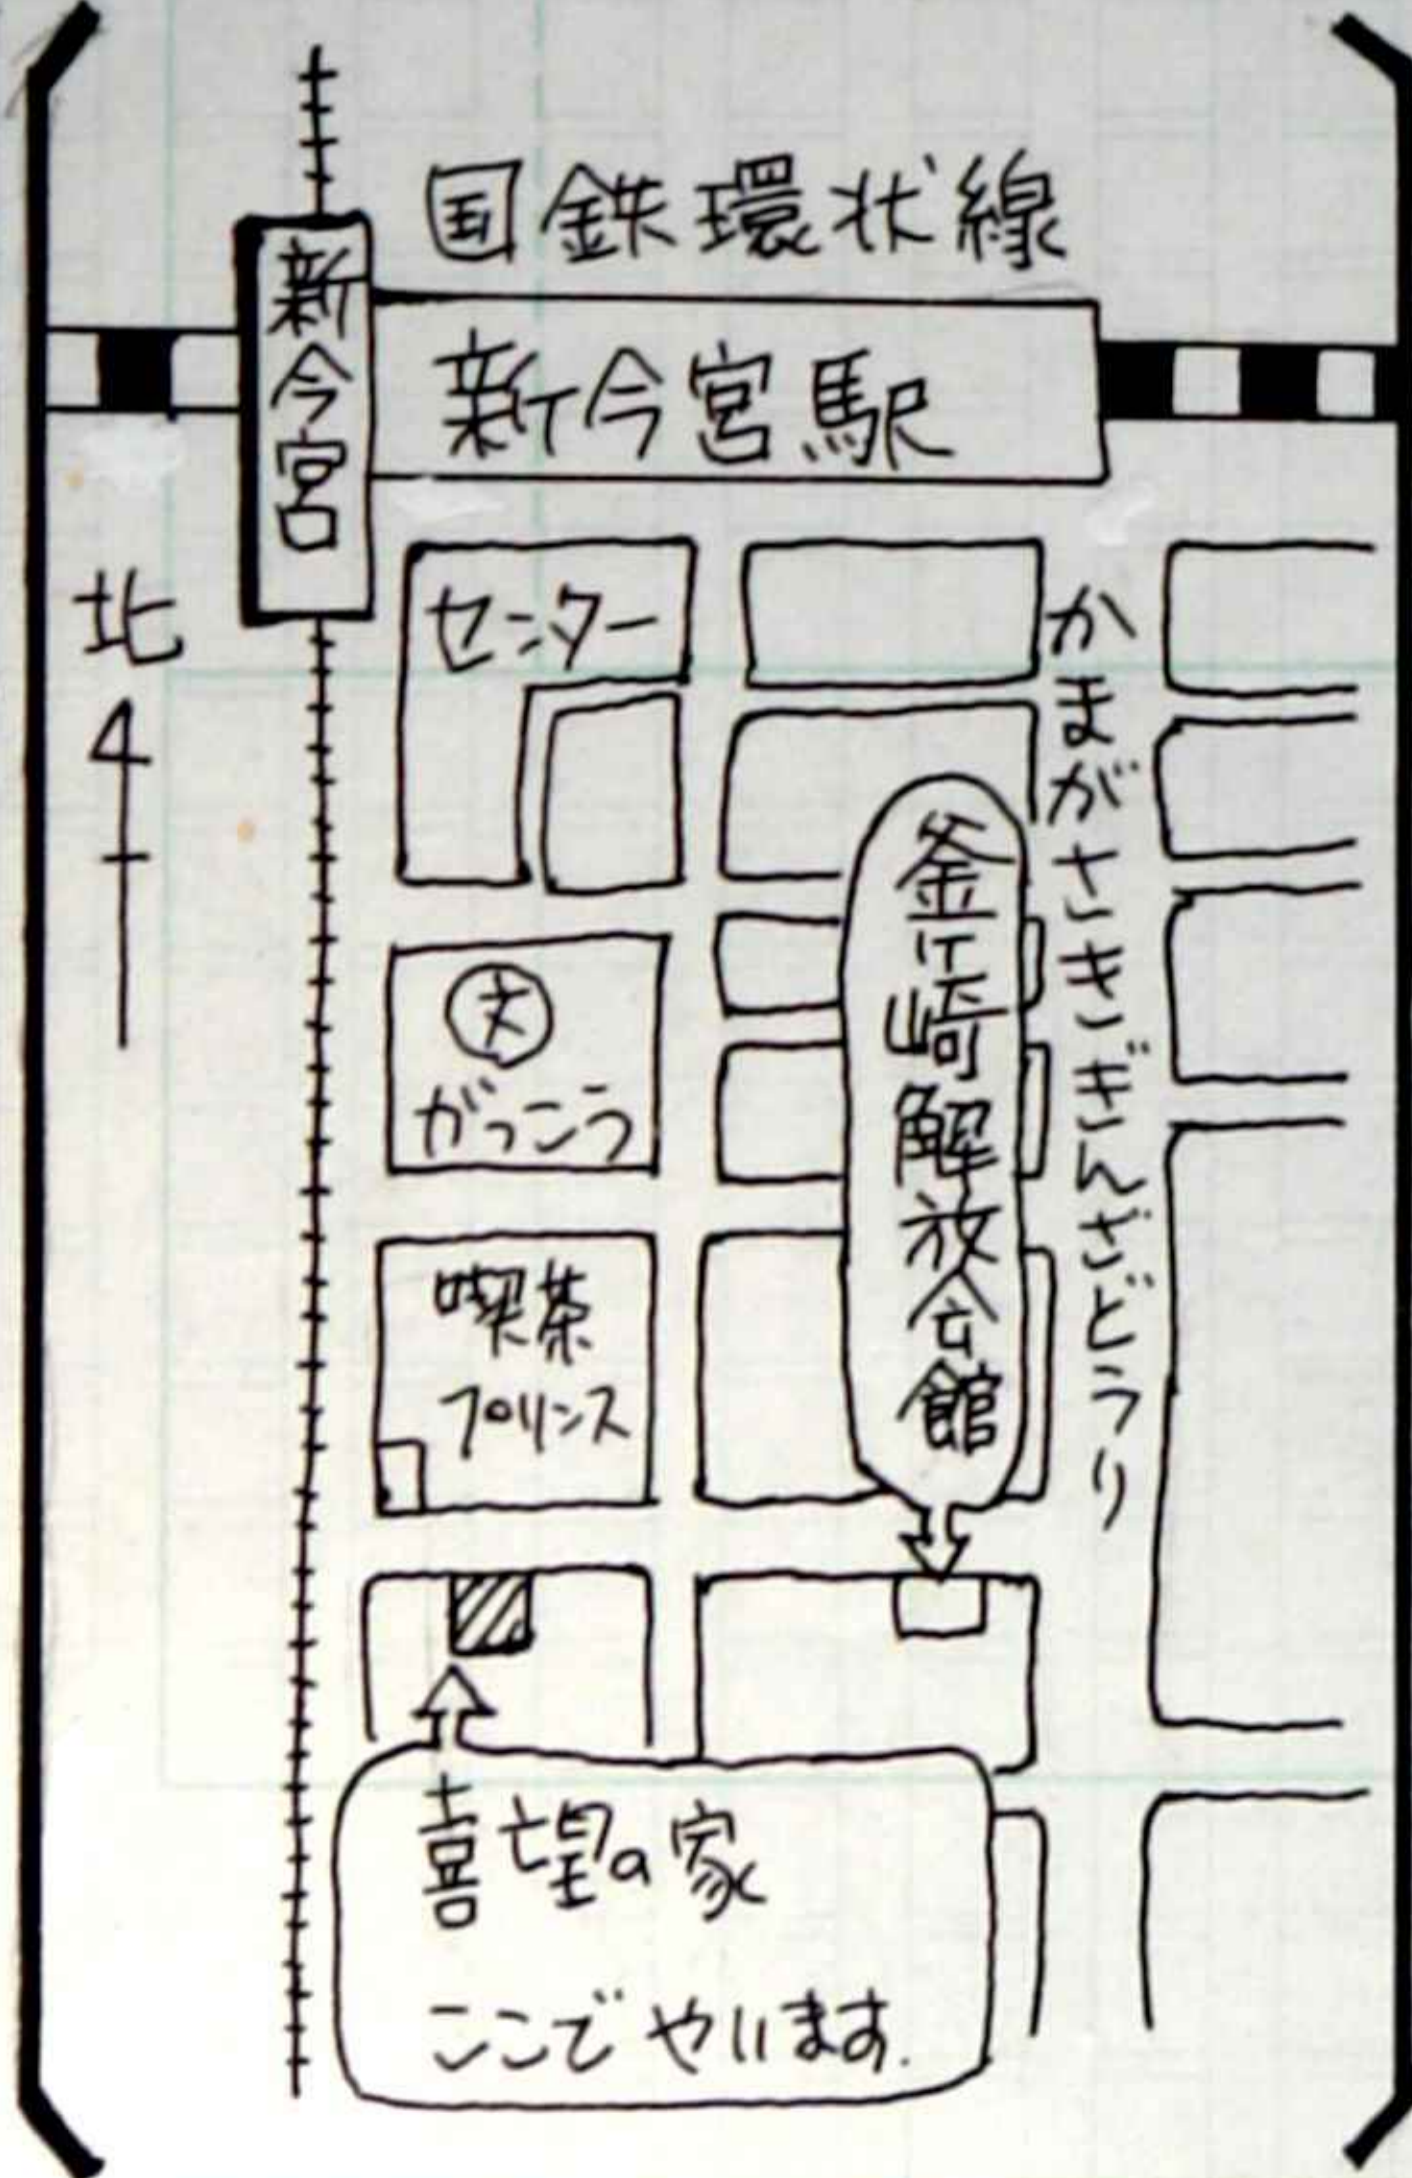 国鉄環状線
新今宮
新今宮駅
北
センター
かまがさきぎんざどうり
釜ヶ崎解放会館
文
がっこう
喫茶
プリンス
喜望の家
ここでやります.